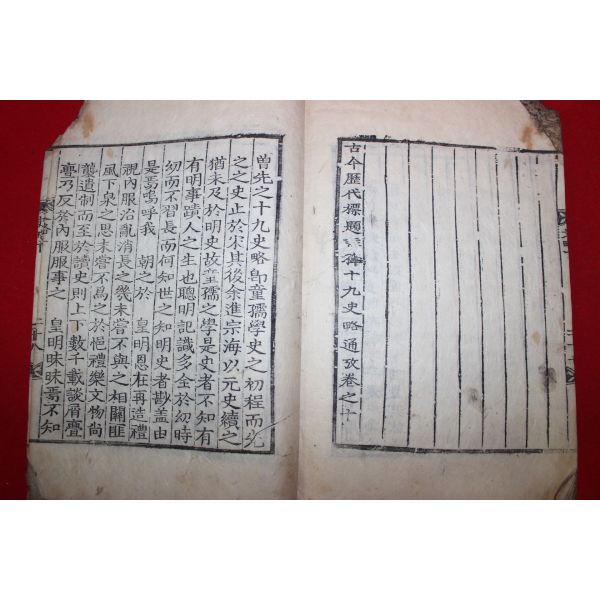 古今歷代標題註釋十九史略通攷卷之十
曾先之十九史略卽童孺學史之初程而先
之之史止於宋其後余進宗海以元史續之
猶未及於明史故童孺之學是史者不知有
有明事蹟人之生也聰明記識多全於幼時
幼而不習長而何知世之知明史者尠盖由
是焉嗚呼我 朝之於 皇明恩在再造禮
視內服治亂消長之幾未嘗不與之相關匪
風下泉之思未嘗不爲之於悒禮樂文物尚
襲遺制而至於讀史則上下數千載談屑亹
亹乃反於內服服事之 皇明昧昧焉不知